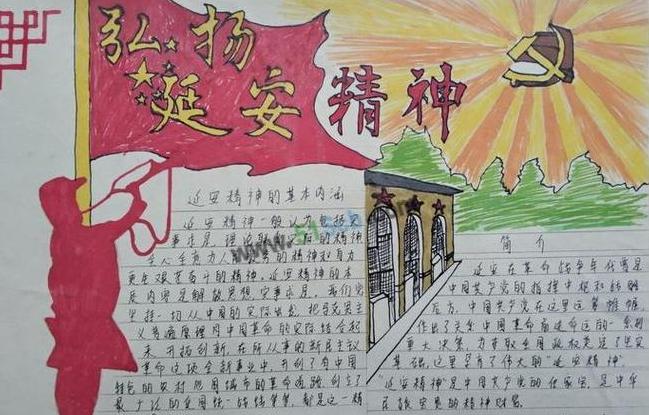 弘扬
延安精神
延安精神的基本内涵
延安精神一般认为包括实
事求是、理论联系 的精神
全心全意为人 的精神和自力
更生艰苦奋斗的精神。延安精神的本
质内容是解放思想、实事求是。我们党
坚持一切从中国的实际出发,把马克思主
义普遍原理同中国革命的实际结合起
来,开拓创新,在所从事的新民主主义
革命这项全新事业中,开创了有中国
特色的农村包围城市的革命道路,创立了
最广泛的爱国统一战线 都是这一精
简介
延安在革命战争年代曾是
中国共产党的指挥中枢和战略
后方,中国共产党在这里运筹帷幄,
作出了关乎中国革命前途命运的一系列
重大决策,为夺取全国政权奠定了坚实
基础,这里孕育了伟大的“延安精神”,
“延安精神”是中国共产党的传家宝,是中华
民族宝贵的精神财富。